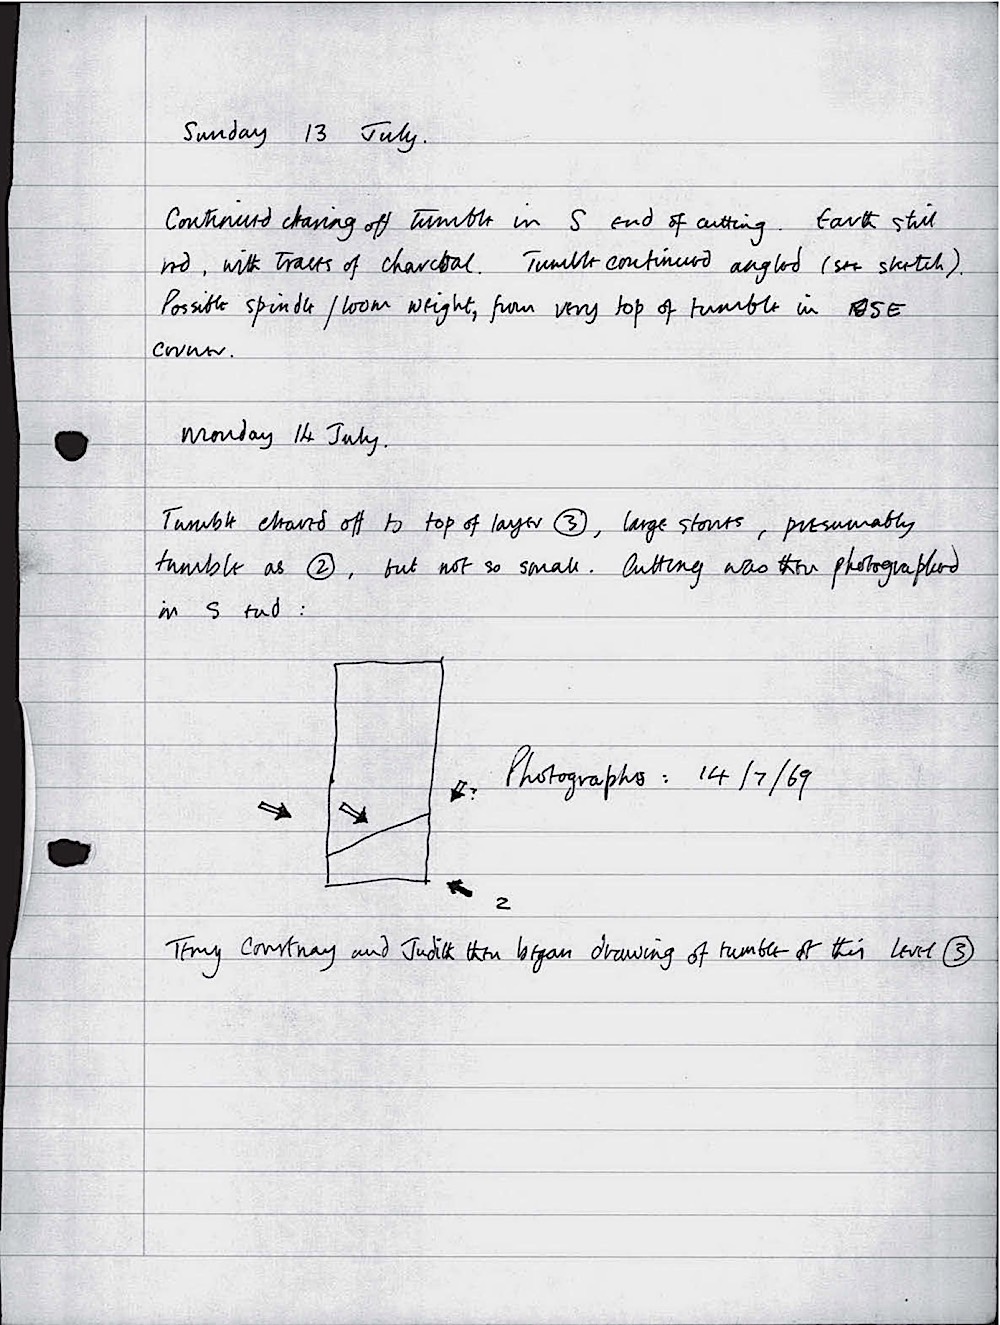 Sunday 13 July.
Continued clearing off tumble in S end of cutting. Earth still
red, with traces of charcoal. Tumble continued angled (see sketch).
Possible spindle/loom weight, from very top of tumble in SE
corner.
Monday 14 July.
Tumble cleared off to top of layer ③, large stones, presumably
tumble as ②, but not so small. Cutting was then photographed
in S end :
?
Photographs : 14/7/69
2
Courtnay and Judith then began drawing of tumble at this level ③